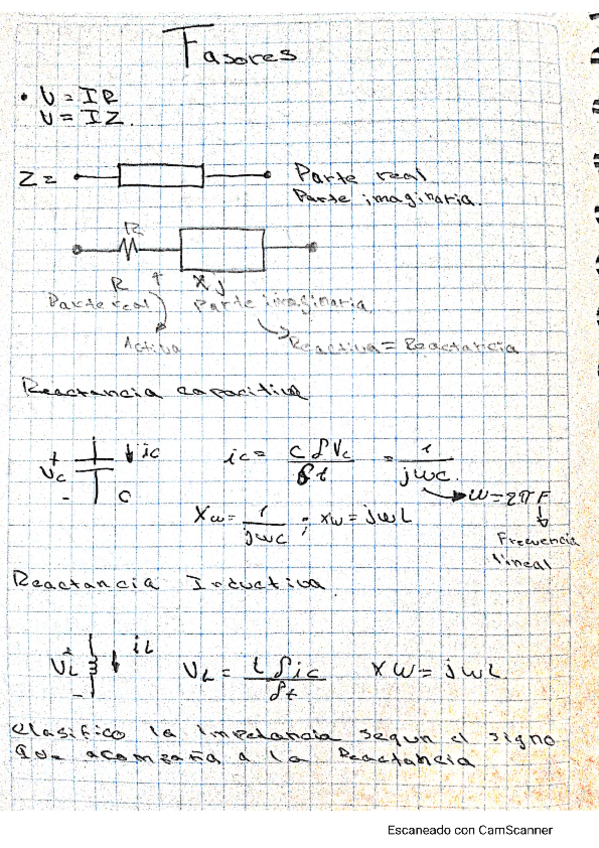 Fasores
• V = I R
V = I Z.
Z =
Parte real
Parte imaginaria.
R
R
X j
Parte real
Parte imaginaria
Activa
Reactiva = Reactancia
Reactancia capacitiva
+
Vc
-
ic
C
ic = C δVc / δt = 1 / jωc.
ω = 2πF
Xω = 1 / jωc ; xω = jωL
Frecuencia
lineal
Reactancia Inductiva.
+
VL
-
iL
VL = L δic / δt
Xω = jωL
Clasifico la impedancia segun el signo
que acompaña a la Reactancia
Escaneado con CamScanner